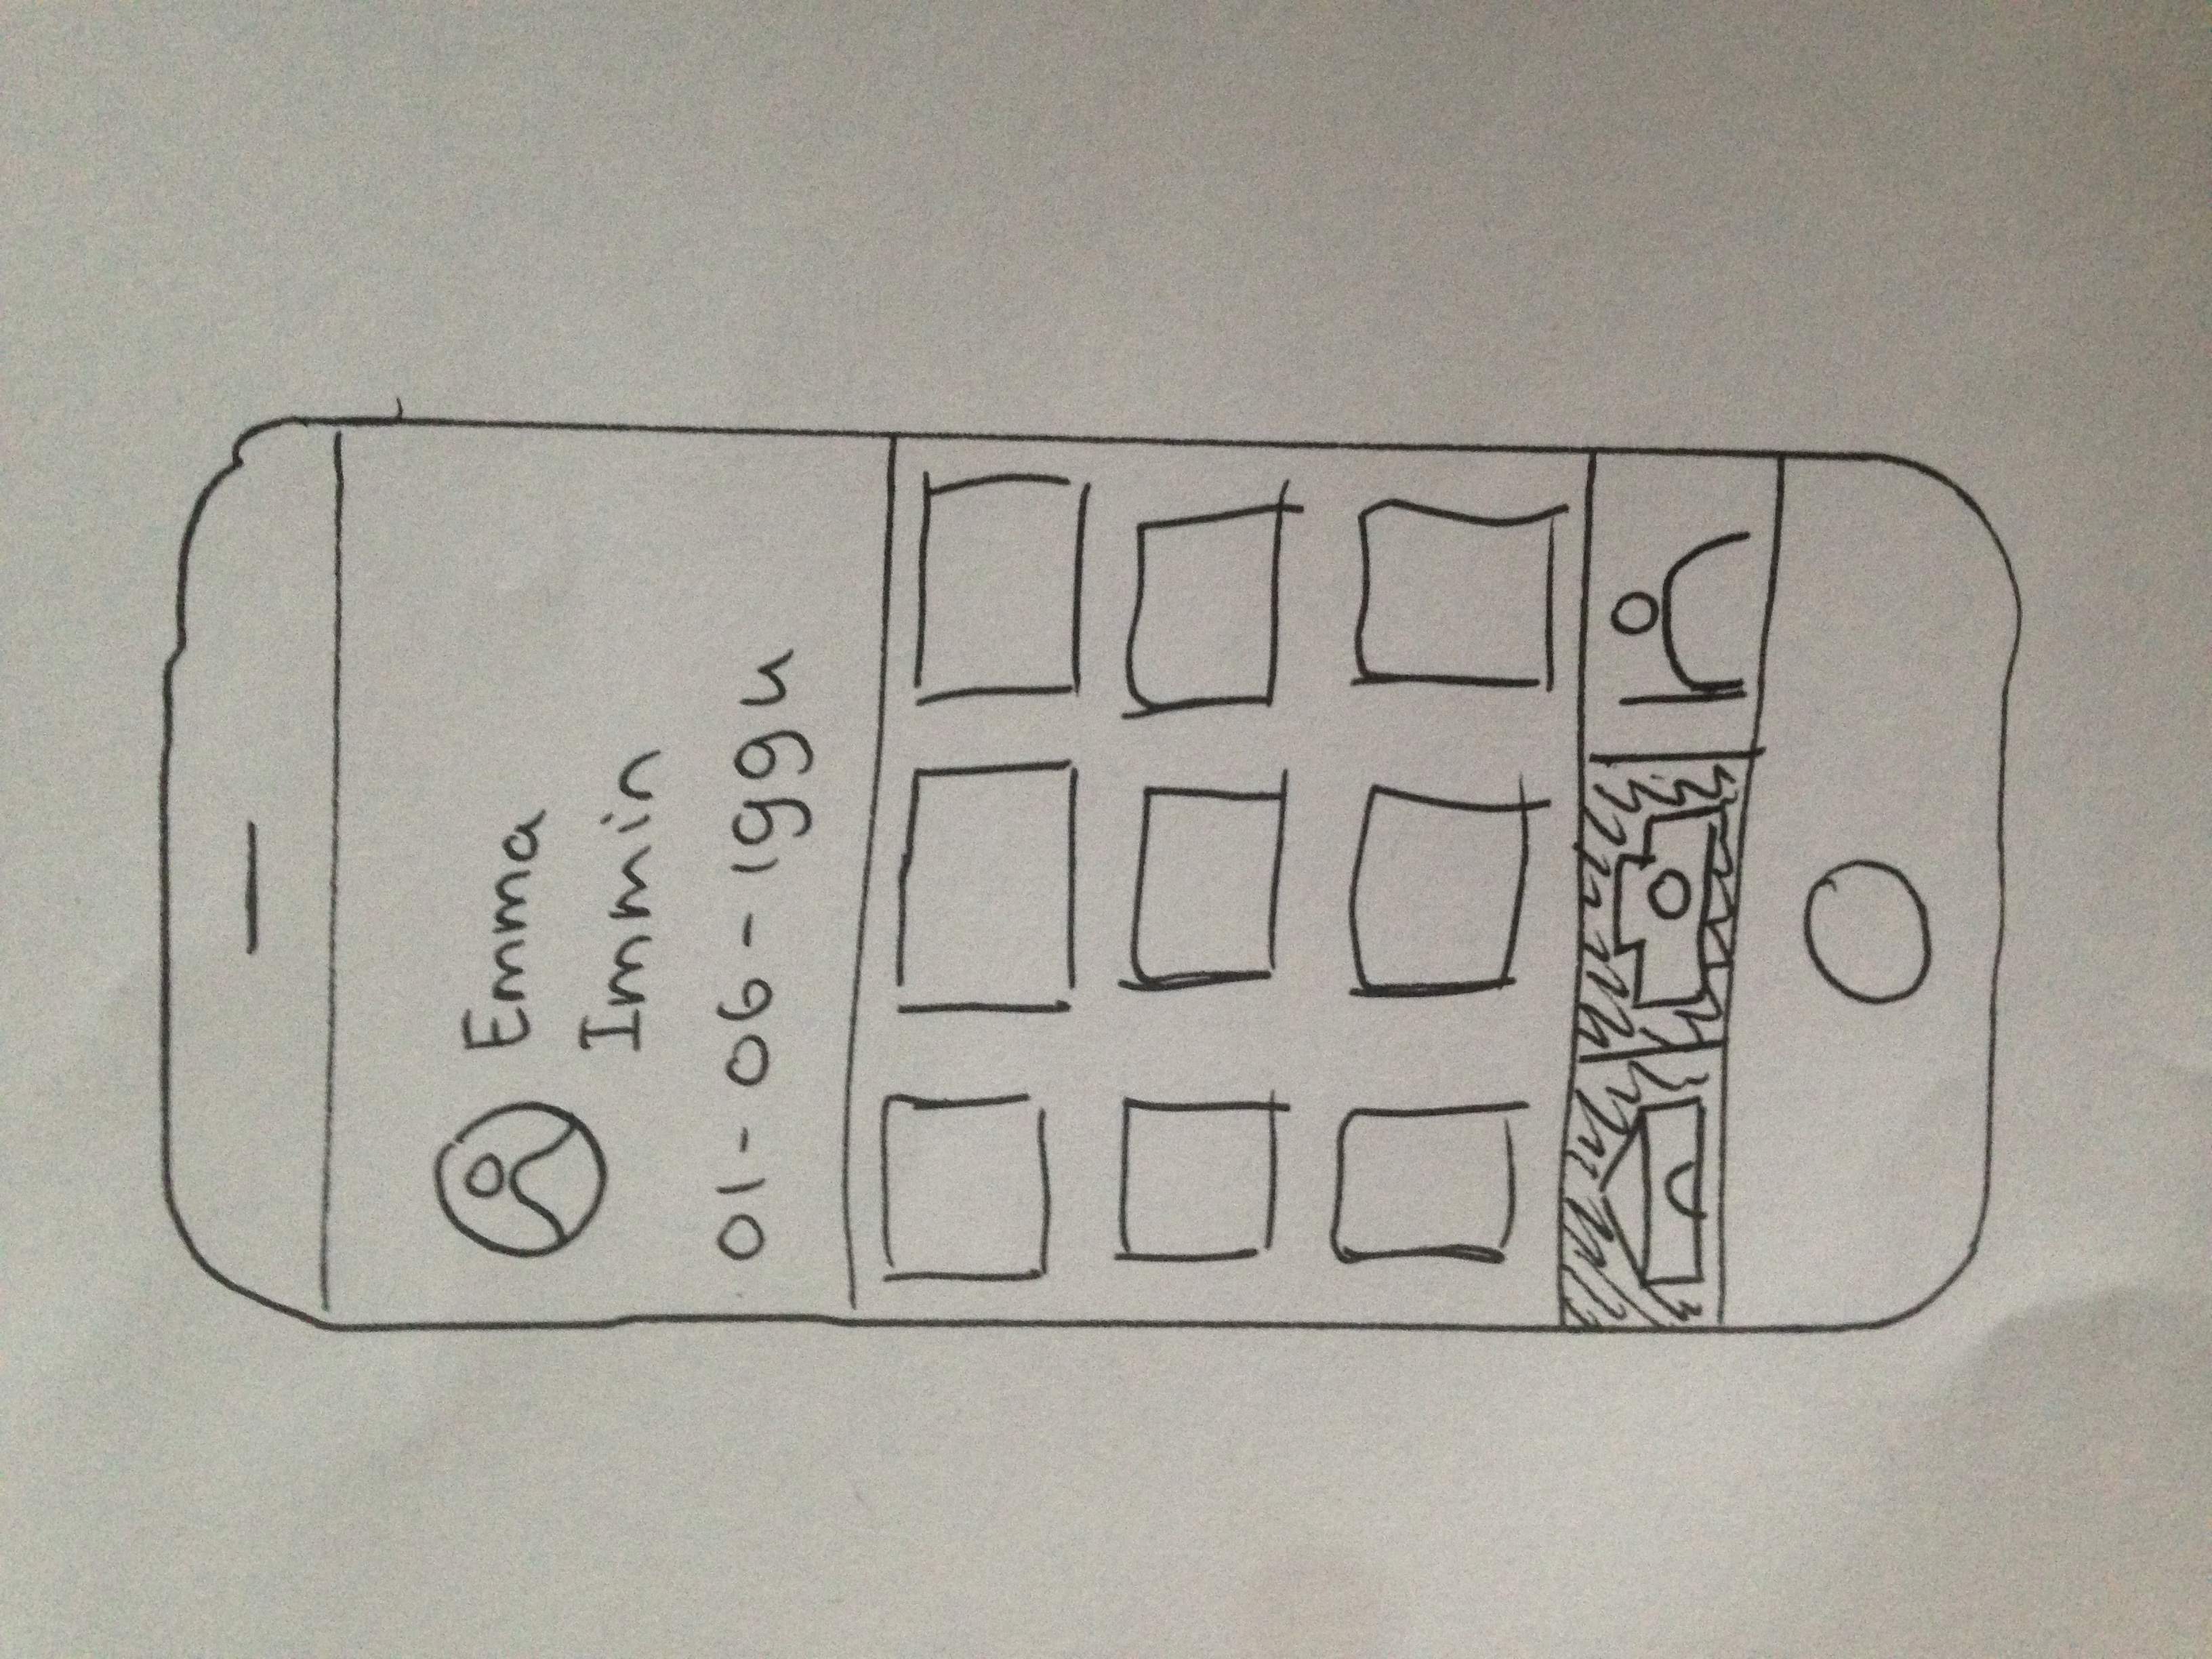 Emma
Immin
01-06-1994